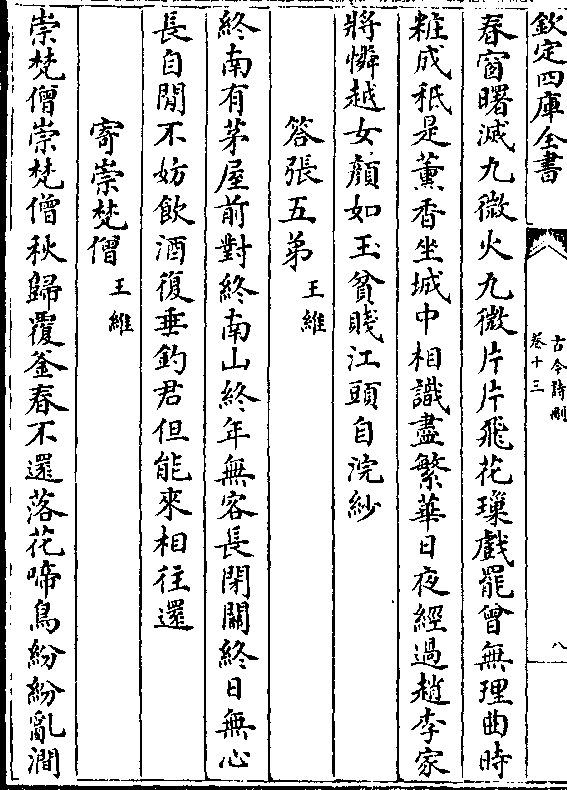 欽定四庫全書
古今詩刪
卷十三
八
春窗曙滅九微火九微片片飛花璅戲罷曾無理曲時
粧成秪是薰香坐城中相識盡繁華日夜經過趙李家
將憐越女顏如玉貧賤江頭自浣紗
答張五弟 王維
終南有茅屋前對終南山終年無客長閉關終日無心
長自閒不妨飲酒復垂釣君但能來相往還
寄崇梵僧 王維
崇梵僧崇梵僧秋歸覆釜春不還落花啼鳥紛紛亂澗